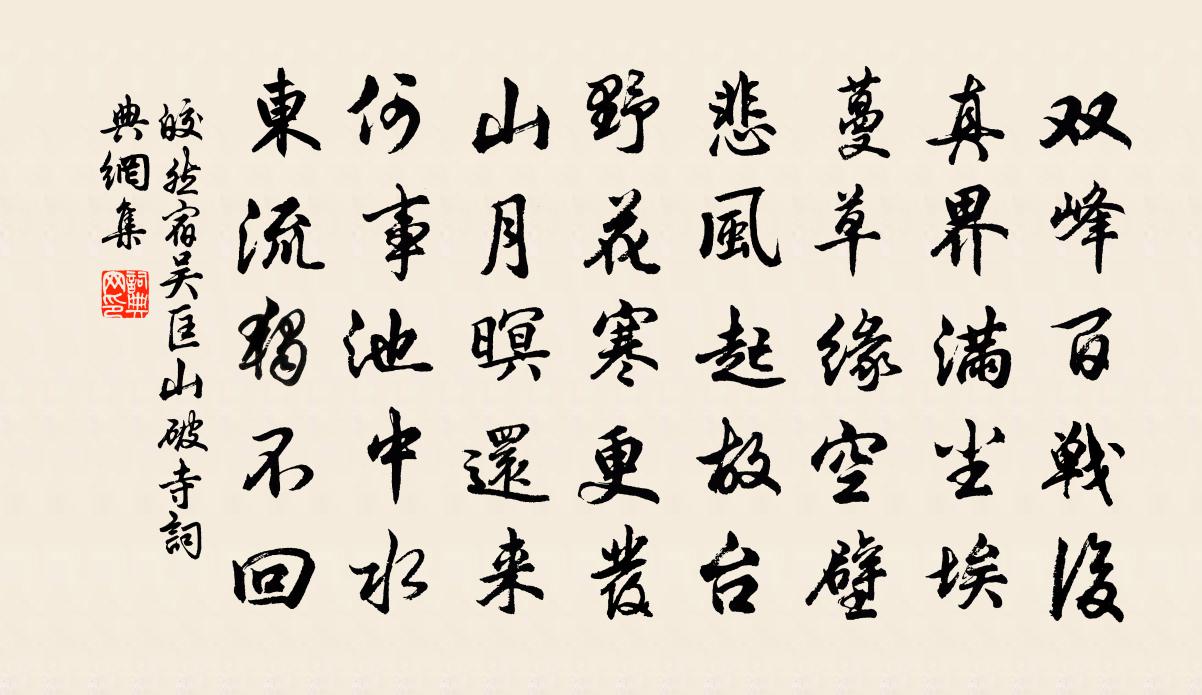 双峰百戦後
真界満尘埃
蔓草緣空壁
悲風起故台
野花寒更發
山月暝還来
何事池中水
東流獨不回
皎然宿吴匡山破寺詞
典網集
詞典
网印